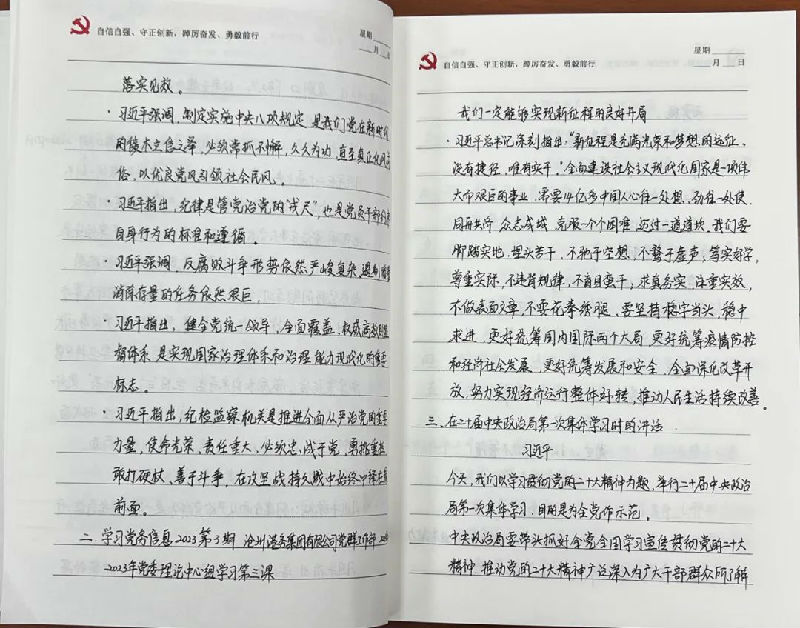 自信自强、守正创新,踔厉奋发、勇毅前行
星期
月 日
落实见效。
· 习近平强调,制定实施中央八项规定,是我们党在新时代
的徙木立信之举,必须常抓不懈,久久为功,直至真正化风
俗,以优良党风引领社会民风。
· 习近平指出,纪律是管党治党的"戒尺",也是党员干部约束
自身行为的标准和遵循。
· 习近平强调,反腐败斗争形势依然严峻复杂,遏制增量
清除存量的任务依然艰巨。
· 习近平指出,健全党统一领导、全面覆盖、权威高效的监
督体系,是实现国家治理体系和治理能力现代化的重要
标志。
· 习近平指出,纪检监察机关是推进全面从严治党的重要
力量,使命光荣、责任重大,必须忠诚于党、勇挑重担,
敢打硬仗、善于斗争,在攻坚战持久战中始终冲锋在最
前面。
二、学习党务信息2023第3期 沧州港务集团有限公司党群工作部
2023年党委理论中心组学习第三课
自信自强、守正创新,踔厉奋发、勇毅前行
星期
月 日
我们一定能够实现新征程的良好开局
· 习近平总书记深刻指出:"新征程是充满光荣和梦想的远征,
没有捷径,唯有实干。"全面建设社会主义现代化国家是一项伟
大而艰巨的事业,需要14亿多中国人心往一处想、劲往一处使、
同舟共济、众志成城,克服一个个困难,迈过一道道坎。我们要
脚踏实地、埋头苦干,不驰于空想、不骛于虚声,笃实好学,
尊重实际,不违背规律,不盲目蛮干,求真务实,注重实效,
不做表面文章,不耍花拳绣腿,要坚持稳字当头、稳中
求进,更好统筹国内国际两个大局,更好统筹疫情防控
和经济社会发展,更好统筹发展和安全,全面深化改革开
放,努力实现经济运行整体好转,推动人民生活持续改善。
三、在二十届中央政治局第一次集体学习时的讲话
习近平
今天,我们以学习贯彻党的二十大精神为题,举行二十届中央政治
局第一次集体学习,目的是为全党作示范。
中央政治局要带头抓好全党全国学习宣传贯彻党的二十大
精神,推动党的二十大精神广泛深入为广大干部群众所了解